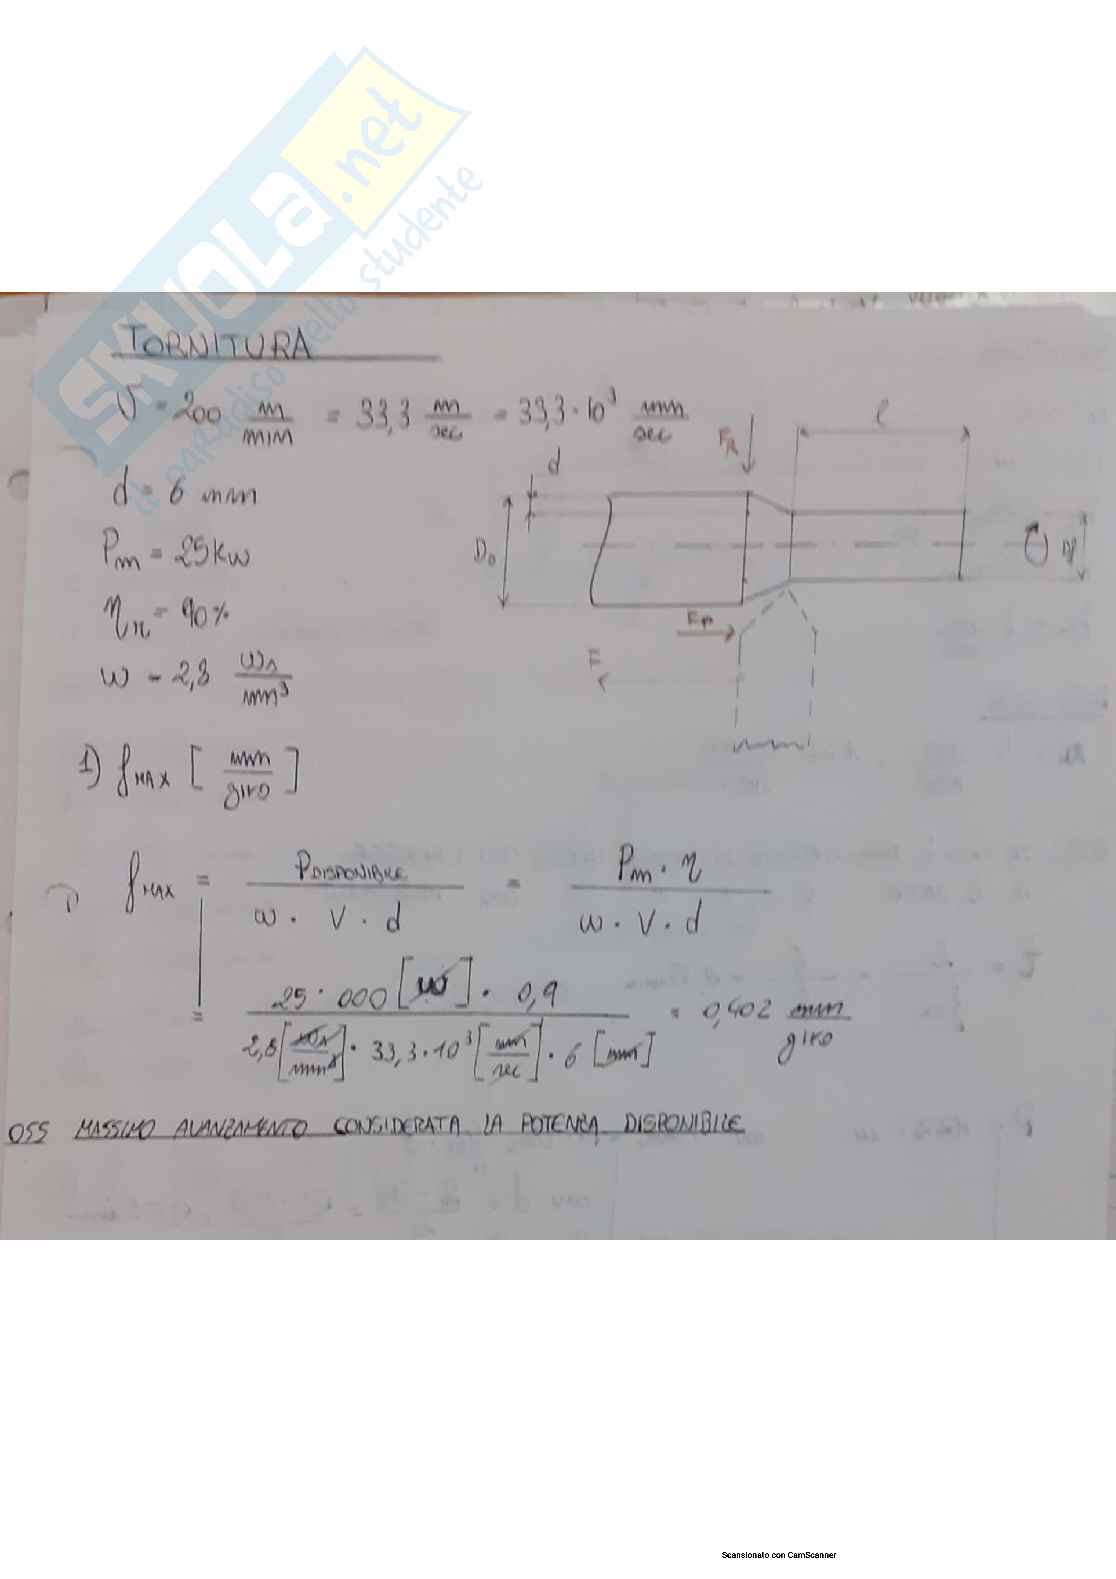 SKUOLA.net
il paradiso dello studente
TORNITURA
V = 200 m/min = 33,3 m/sec = 33,3·10³ mm/sec
d = 6 mm
Pm = 25 kW
ηn = 90%
w = 2,8 Ws/mm³
d
FR
l
D0
Df
FP
1) fMAX [mm/giro]
1) fMAX = PDISPONIBILE / w · V · d = Pm · η / w · V · d
= 25·000 [W] · 0,9 / 2,8 [Ws/mm³] · 33,3·10³ [mm/sec] · 6 [mm] = 0,402 mm/giro
OSS MASSIMO AVANZAMENTO CONSIDERATA LA POTENZA DISPONIBILE
Scansionato con CamScanner